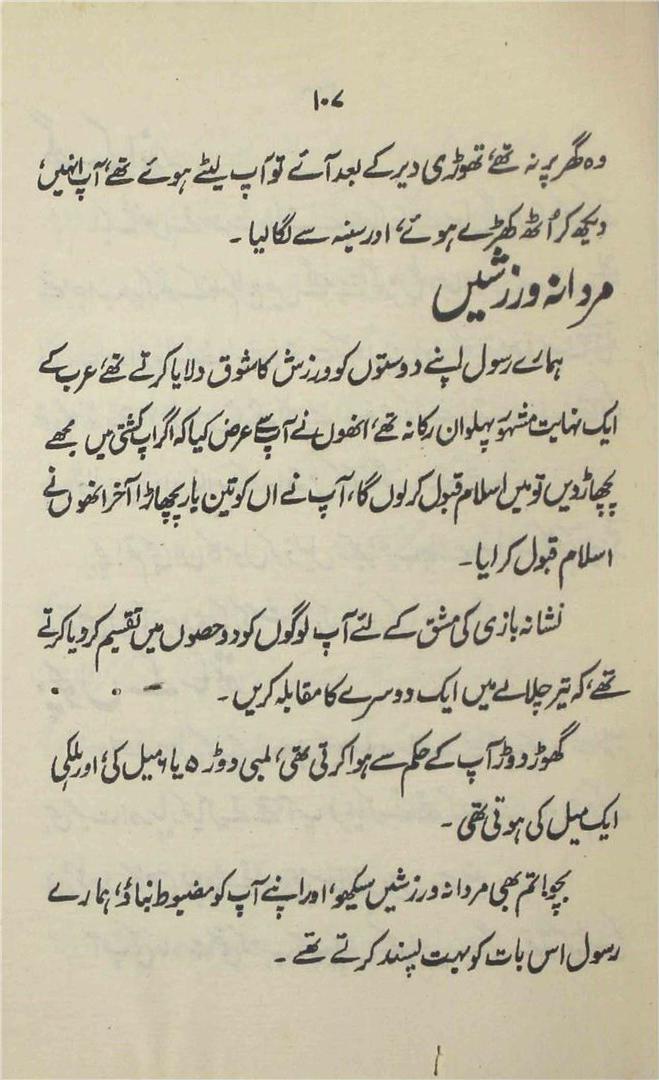 ۱۰۷
وہ گھر پر نہ تھے، تھوڑی دیر کے بعد آئے تو آپ لیٹے ہوئے تھے، آپ انہیں،
دیکھ کر اُٹھ کھڑے ہوئے، اور سینہ سے لگا لیا ۔
مردانہ ورزشیں
ہمارے رسول اپنے دوستوں کو ورزش کا شوق دلایا کرتے تھے، عرب کے
ایک نہایت مشہور پہلوان رکانہ تھے، انھوں نے آپ سے عرض کیا کہ اگر آپ کشتی میں مجھے
پچھاڑ دیں تو میں اسلام قبول کر لوں گا، آپ نے اں کو تین بار پچھاڑا آخر انھوں نے
اسلام قبول کر لیا۔
نشانہ بازی کی مشق کے لئے آپ لوگوں کو دو حصوں میں تقسیم کر دیا کرتے
تھے، کہ تیر چلانے میں ایک دوسرے کا مقابلہ کریں۔
گھوڑ دوڑ آپ کے حکم سے ہوا کرتی تھی، لمبی دوڑ ۵ یا ۶ میل کی، اور ہلکی
ایک میل کی ہوتی تھی ۔
بچو! تم بھی مردانہ ورزشیں سیکھو، اور اپنے آپ کو مضبوط بناؤ، ہمارے
رسول اس بات کو بہت پسند کرتے تھے ۔